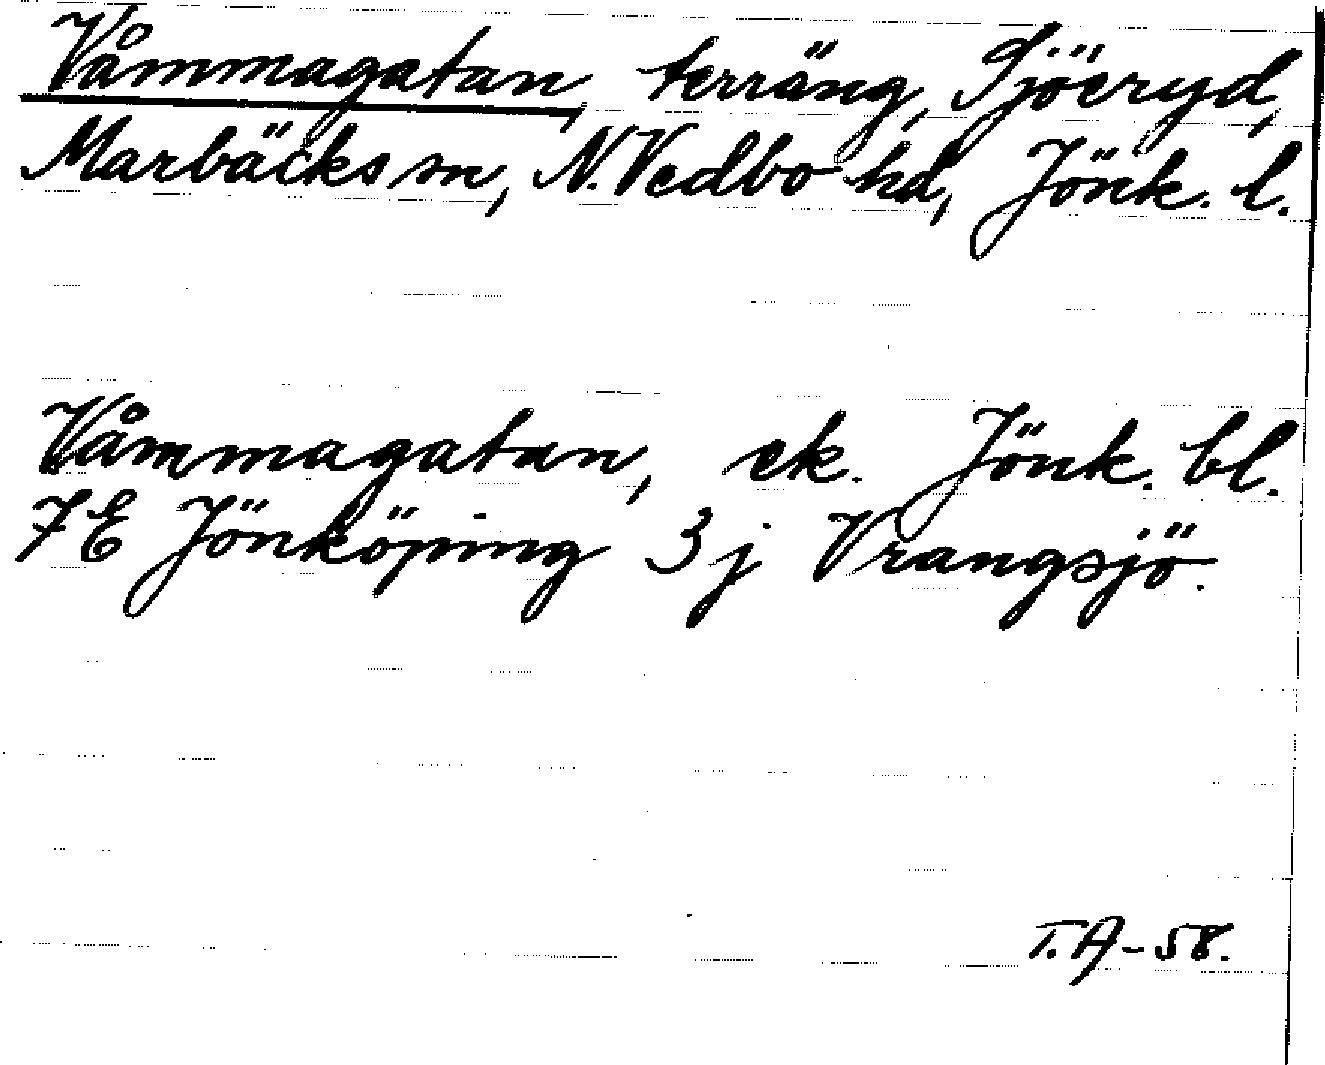 Våmmagatan, terräng, Sjöeryd,
Marbäcks sn, N. Vedbo hd, Jönk. l.
Våmmagatan, ek. Jönk. bl.
7E Jönköping 3j Vrangsjö.
T.A-58.